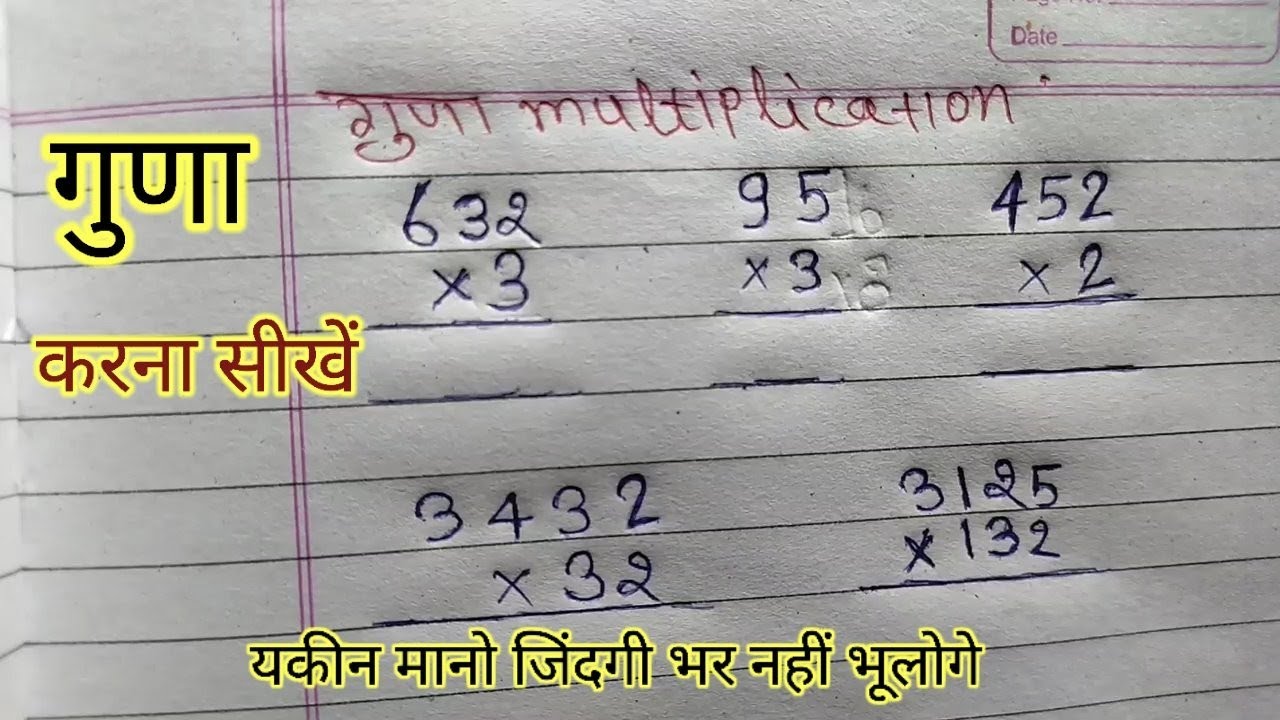 Date
गुणा multiplication
गुणा
632 95 452
× 3 × 3 × 2
करना सीखें
3432 3125
× 32 × 132
यकीन मानो जिंदगी भर नहीं भूलोगे